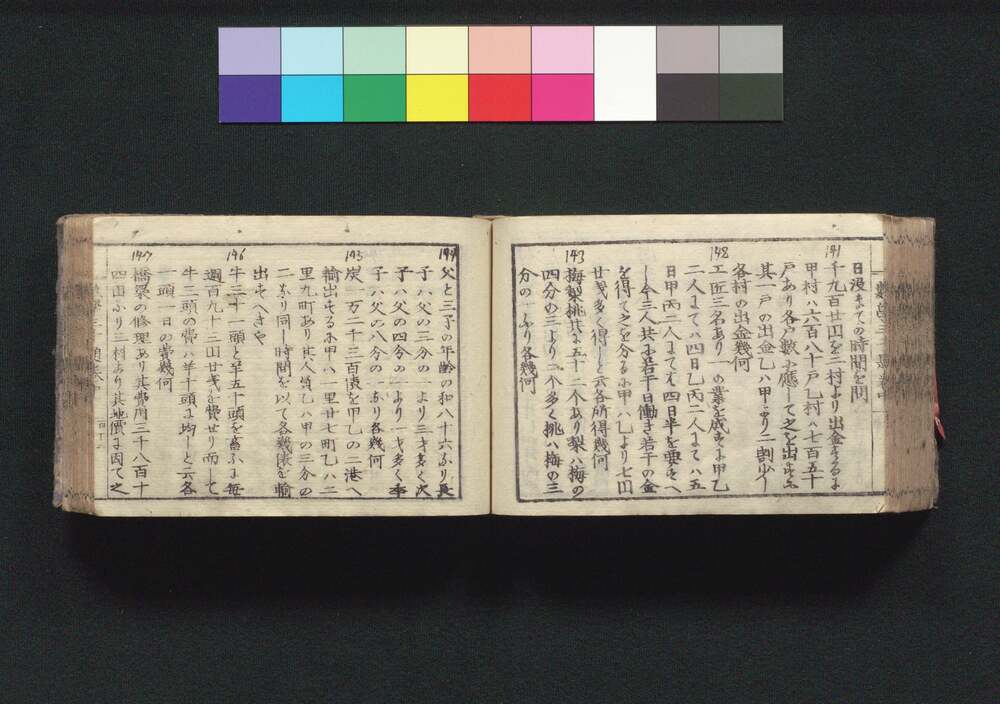 日没までの時間を問
141
千九百廿四を二村より出金するに
甲村ハ六百八十戸乙村ハ七百五十
戸あり各戸數に應して之を出すに
其一戸の出金乙ハ甲より二割少し
各村の出金幾何
142
工匠三名あり一の業を成すに甲乙
二人にてハ四日乙丙二人にてハ五
日甲丙二人にてハ四日半を要すへ
し今三人共に若干日働き若干の金
を得て之を分るに甲ハ乙より七円
廿幾多く得しと云各所得幾何
143
梅梨桃共に五十二个あり梨ハ梅の
四分の三より二个多く桃ハ梅の三
分の一なり各幾何
144
父と三子の年齢の和八十六なり長
子ハ父の三分の一より三才多く次
子ハ父の四分の一より一才多く季
子ハ父の八分の一なり各幾何
145
炭一万二千三百俵を甲乙の二港へ
輸出するに甲ハ一里廿七町乙ハ二
里九町あり其人質乙ハ甲の三分の
二なり同し時間を以て各幾俵を輸
出すへきや
146
牛三十一頭と羊五十頭を畜ふに毎
週百九十三円廿を費せり而して
牛三頭の費ハ羊十頭に均しと云各
一頭一日の費幾何
147
橋梁の修理あり其費用三千八百十
四円なり三村より其地價に因て之